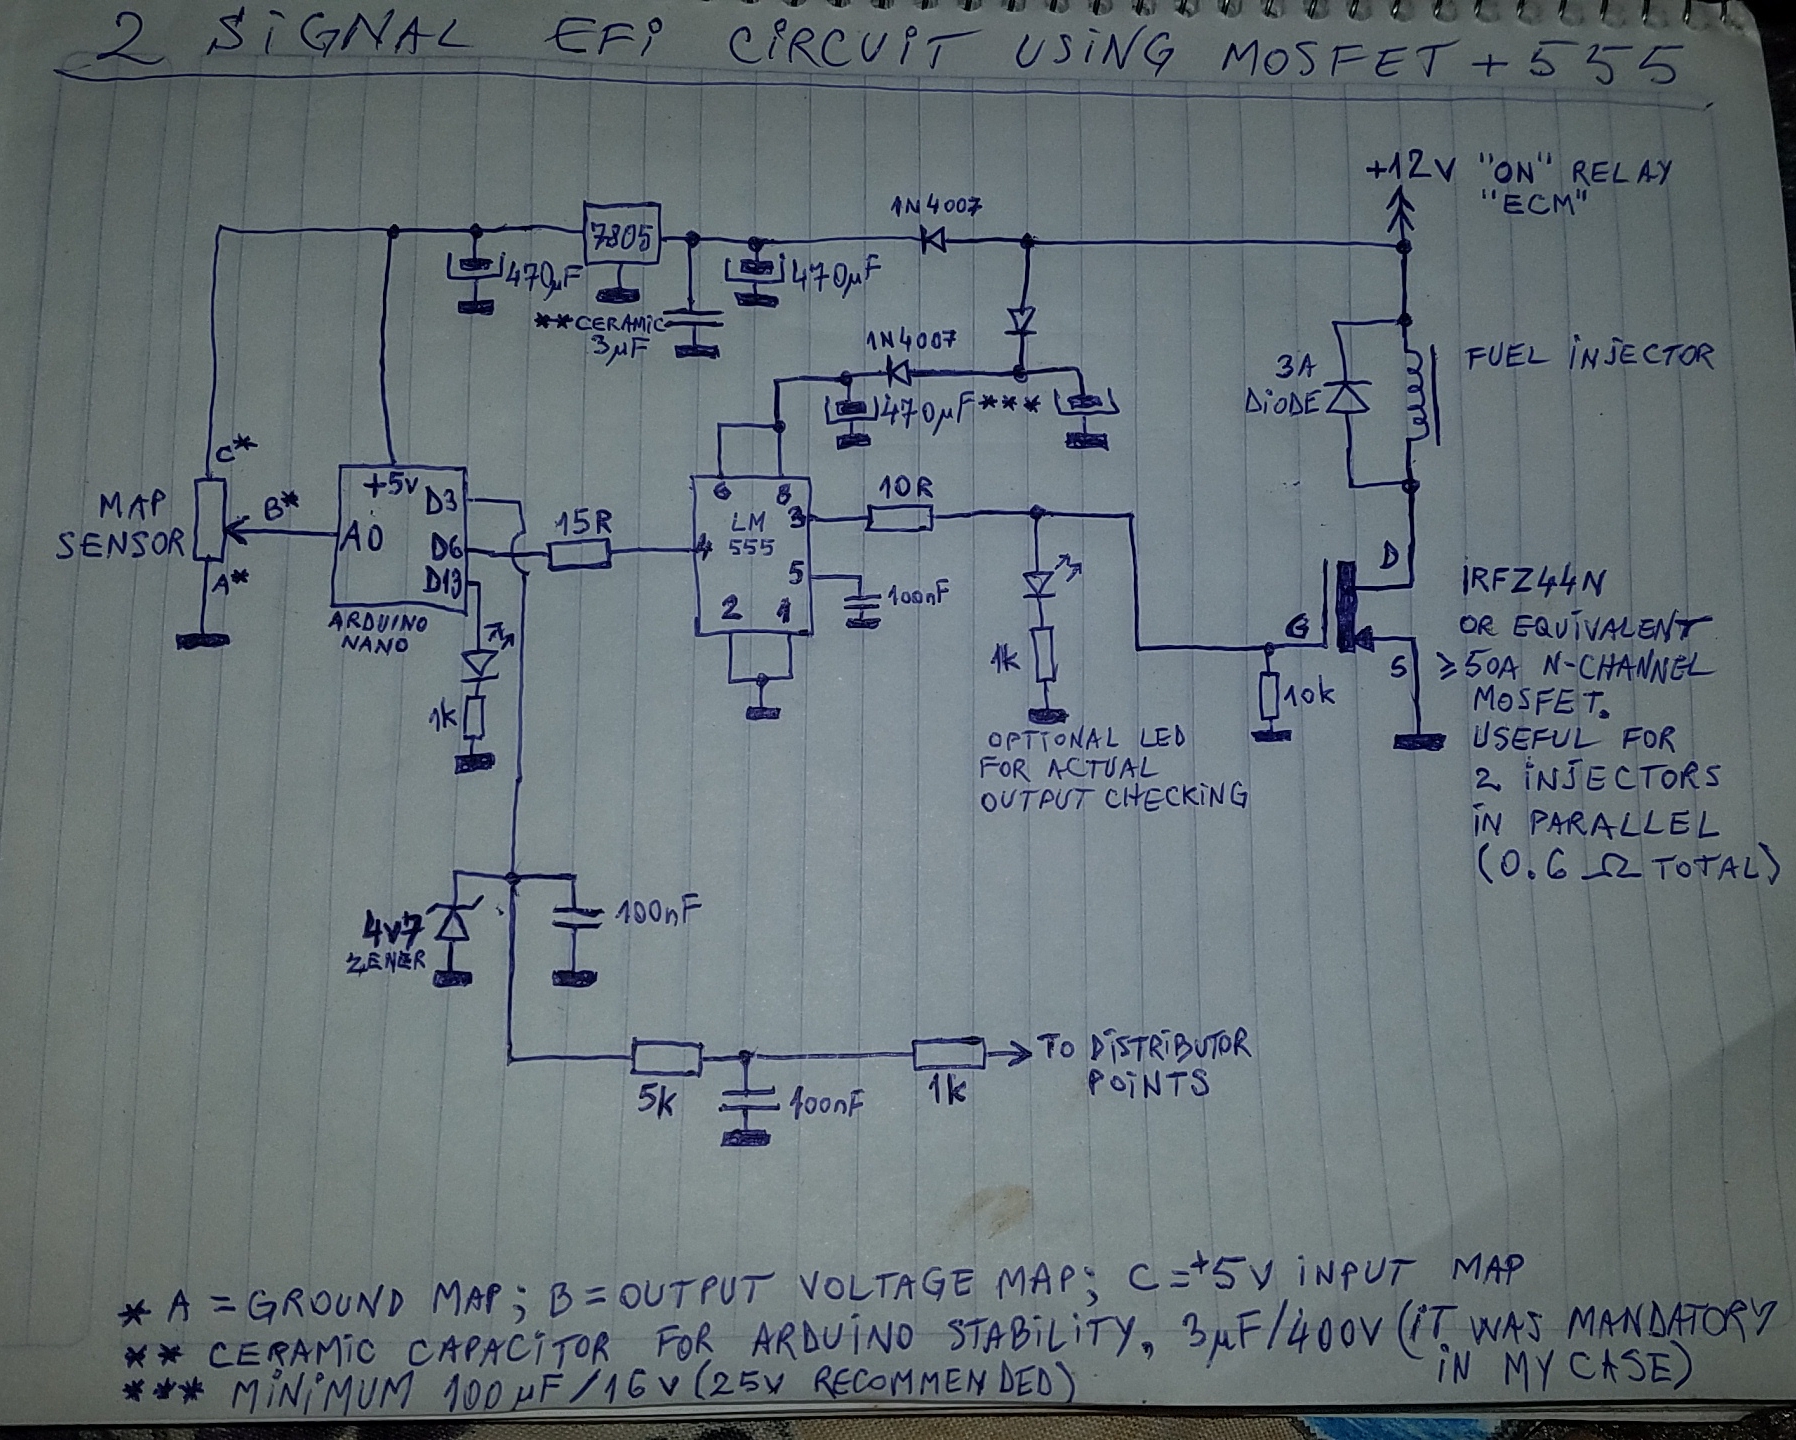 2 SiGNAL EFi CiRCUiT USiNG MOSFET + 555
+12V "ON" RELAY
"ECM"
1N4007
7805
470µF
470µF
**CERAMIC
3µF
1N4007
470µF***
3A
DiODE
FUEL iNJECTOR
C*
MAP
SENSOR
B*
A*
+5V
D3
A0
D6
D13
ARDUiNO
NANO
15R
6
8
LM
555
3
4
5
2
1
10R
100nF
1k
1k
OPTIONAL LED
FOR ACTUAL
OUTPUT CHECKING
D
G
S
10k
iRFZ44N
OR EQUiVALENT
≥50A N-CHANNEL
MOSFET.
USEFUL FOR
2 iNJECTORS
iN PARALLEL
(0.6 Ω TOTAL)
4v7
ZENER
100nF
5k
100nF
1k
TO DiSTRiBUTOR
POiNTS
* A = GROUND MAP; B = OUTPUT VOLTAGE MAP; C = +5V iNPUT MAP
** CERAMiC CAPACiTOR FOR ARDUiNO STABiLiTY, 3µF/400V (iT WAS MANDATORY
iN MY CASE)
*** MiNiMUM 100µF/16V (25V RECOMMENDED)